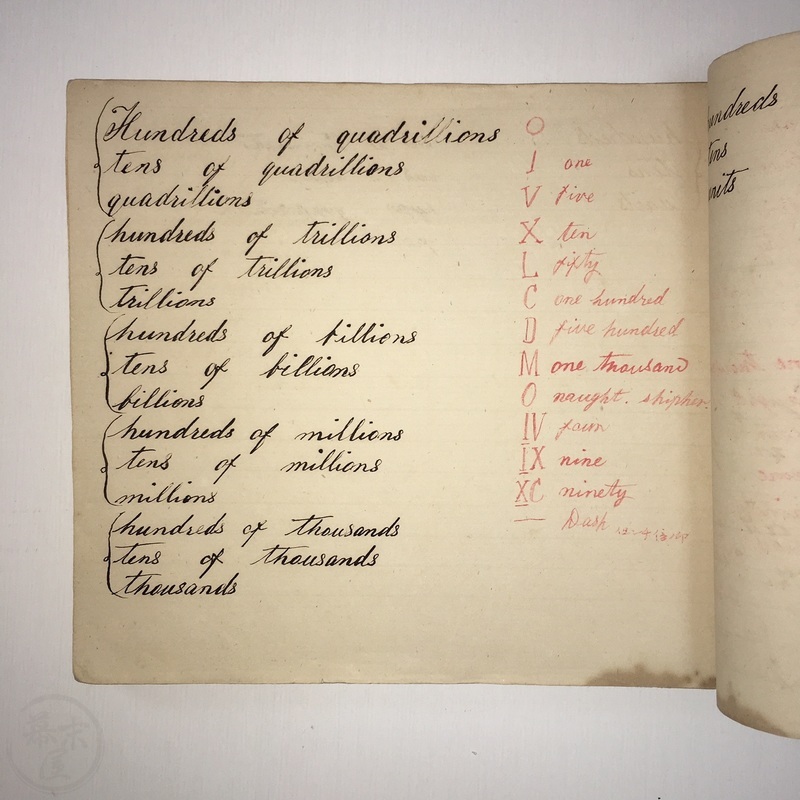 Hundreds of quadrillions
tens of quadrillions
quadrillions
hundreds of trillions
tens of trillions
trillions
hundreds of billions
tens of billions
billions
hundreds of millions
tens of millions
millions
hundreds of thousands
tens of thousands
thousands
O
I one
V five
X ten
L fifty
C one hundred
D five hundred
M one thousand
O naught.
IV
IX nine
XC ninety
— Dash
undreds
tens
units